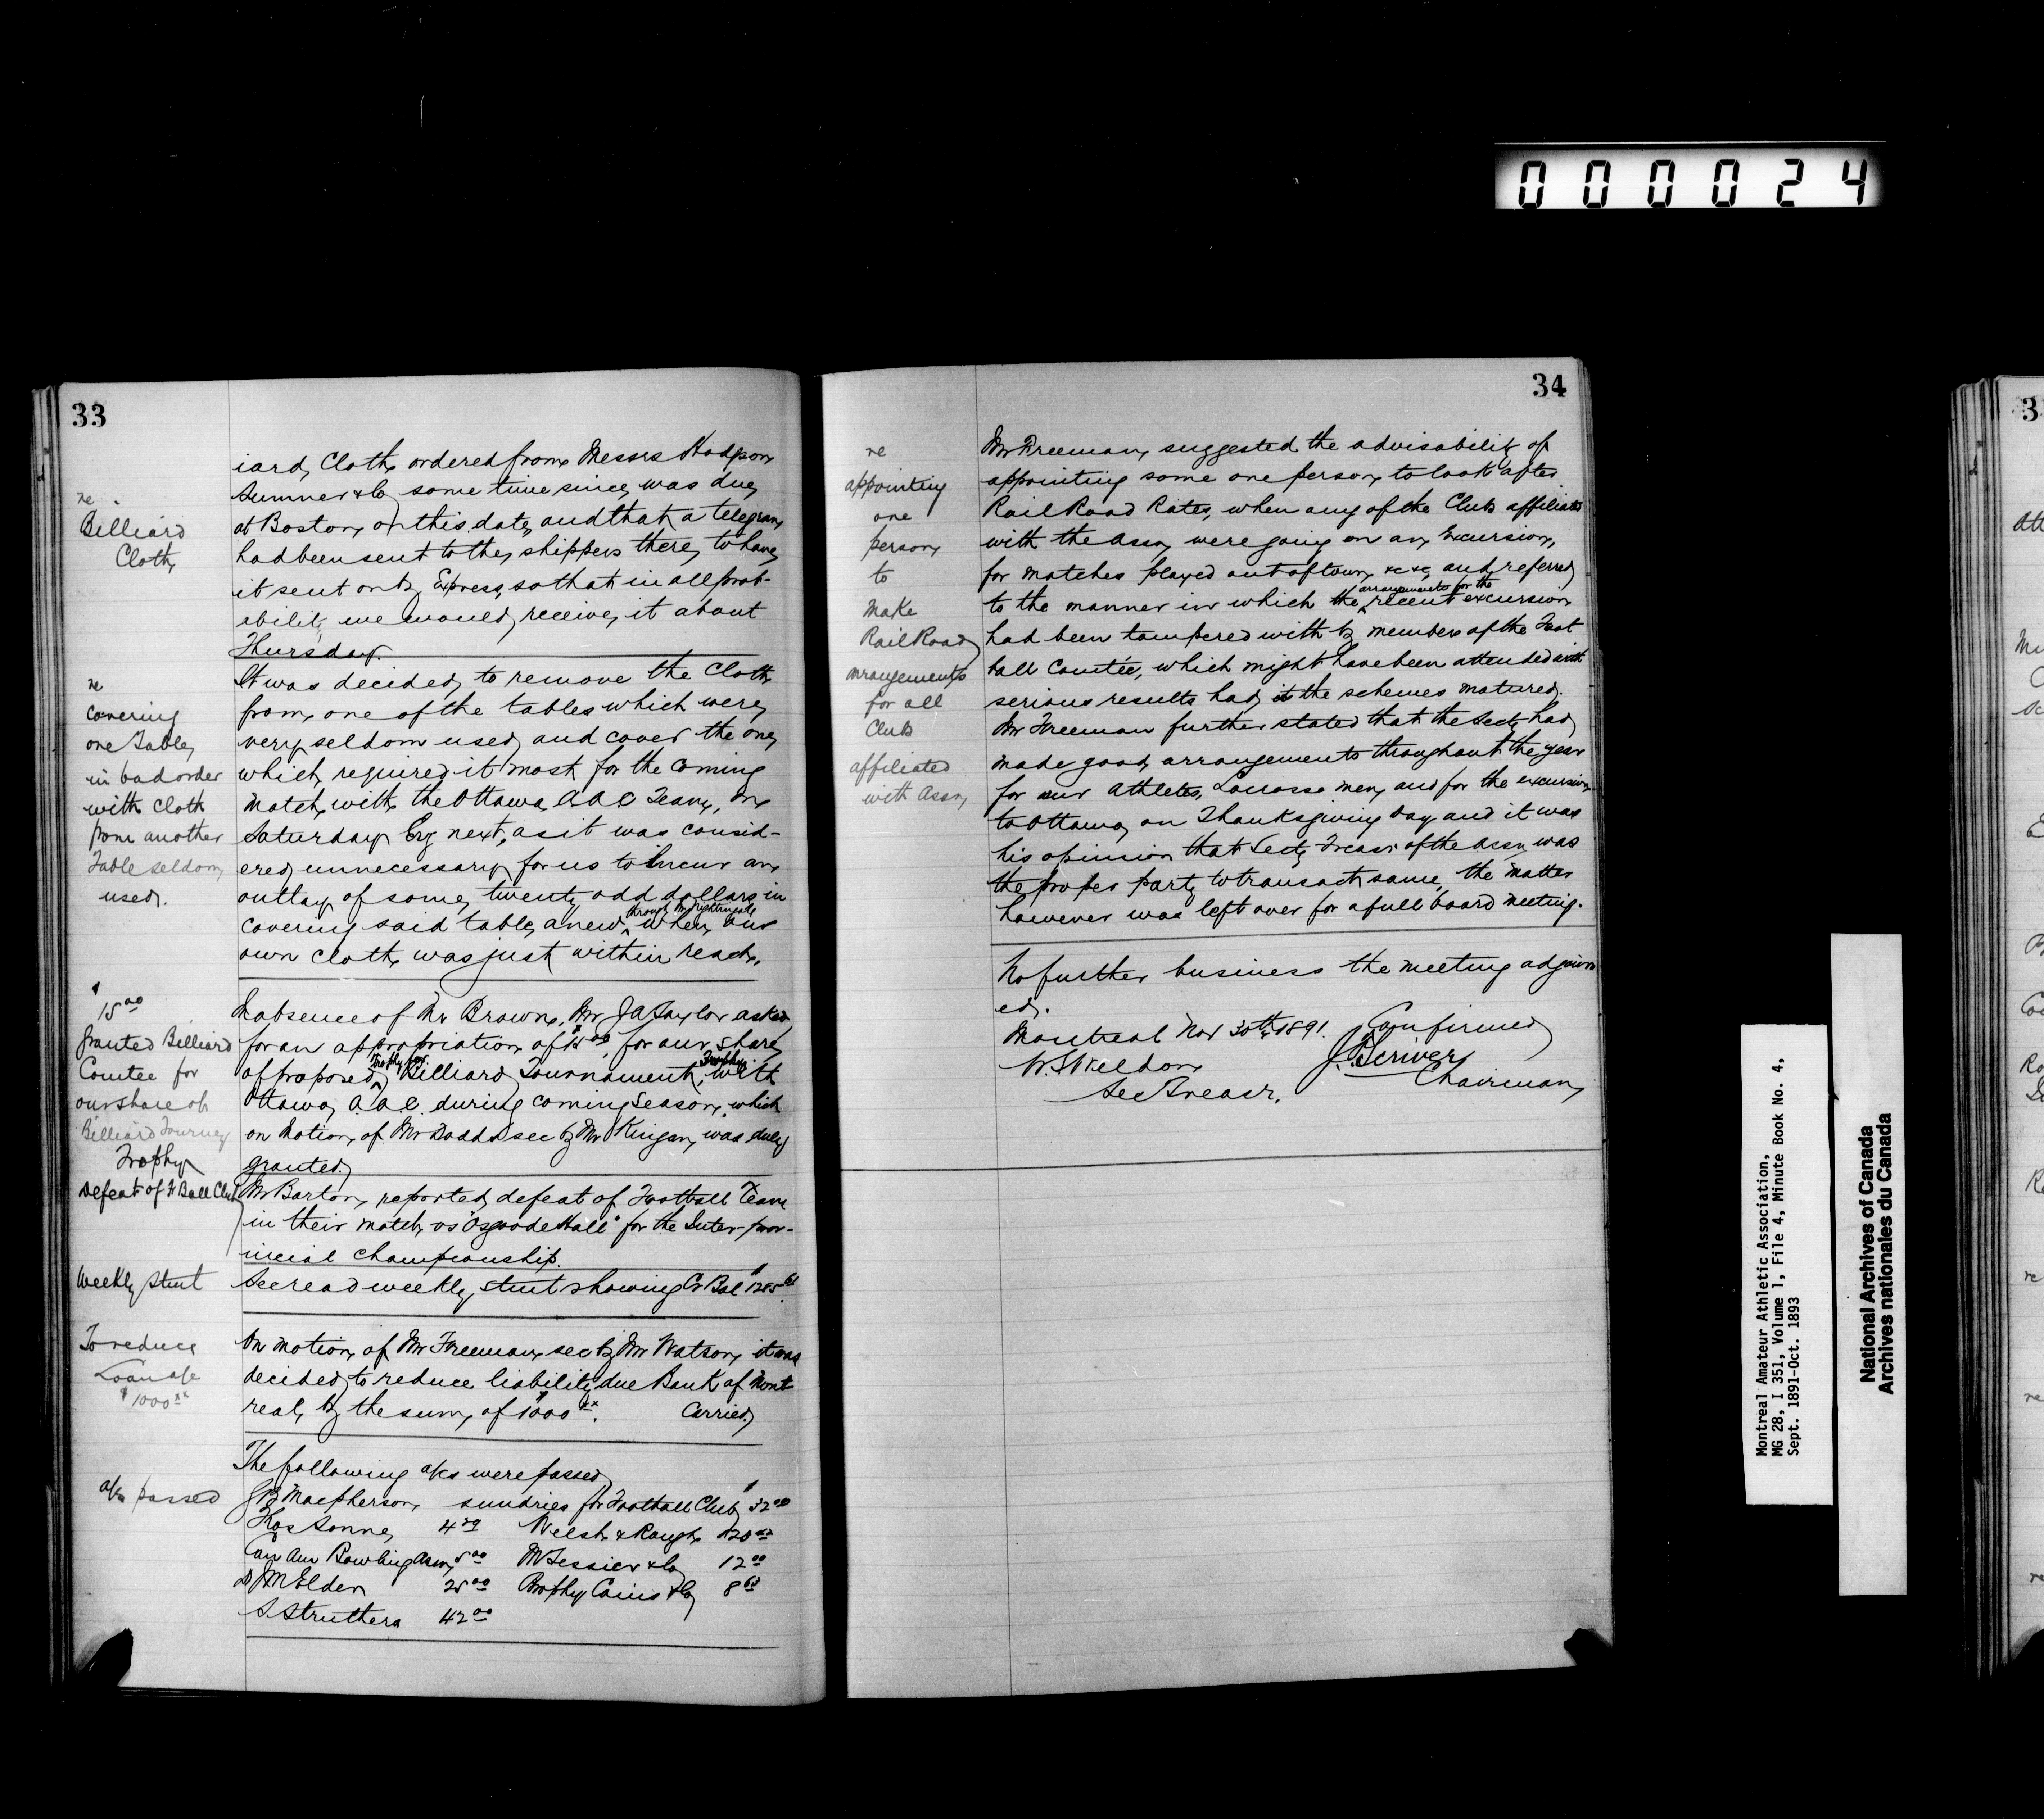 000024
33
iard Cloth ordered from Messrs Hodgson
Sumner & Co some time since, was due
at Boston, on this date, and that a telegram
had been sent to the shippers there, to have
it sent on by Express, so that in all prob-
ability we would receive it about
Thursday.
re
Billiard
Cloth
It was decided to remove the Cloth
from one of the tables which were
very seldom used, and cover the one
which required it most for the coming
match with the Ottawa A A C Team, on
Saturday Evg next, as it was consid-
ered unnecessary for us to incur an
outlay of some twenty odd dollars in
covering said table anew, through Mr Nightingale when our
own cloth was just within reach.
re
covering
one Table
in bad order
with cloth
from another
Table seldom
used.
In absence of Mr Brown, Mr J A Taylor asked
for an appropriation of $15 00, for our share
of proposed Trophy for Billiard Tournament, with
Ottawa A.A.C. during coming Season, which
on motion of Mr Dodd sec by Mr Kingan, was duly
granted.
$
15 00
granted Billiard
Comtee for
our share of
Billiard Tourney
Trophy
Mr Barton, reported defeat of Football Team
in their match vs "Osgoode Hall" for the Inter-prov-
incial Championship.
Defeat of Ft Ball Club
Sec read weekly stmt showing Cr Bal $1285
Weekly Stmt
On motion of Mr Freeman, sec by Mr Watson, it was
decided to reduce liability due Bank of Mont
real, by the sum of $1000 xx. Carried
To reduce
Loan a/c
$1000 xx
The following a/cs were passed
a/cs passed
J B Macpherson, sundries for Football Club $32 00
Thos Sonne, 4 Welsh & Rough 120
Can Am Bowling Assn, 5 00 M Lessier & Co 12 00
J M Elder 25 00 Brophy Cains & Co 8
S Struthers 42 00
34
Mr Freeman, suggested the advisability of
appointing some one person, to look after
Rail Road Rates, when any of the Clubs affiliated
with the Assn, were going on an Excursion,
for matches played out of town, &c &c, and referred
to the manner in which the arrangements for the recent excursion
had been tampered with by members of the Foot
ball Comtée, which might have been attended with
serious results had the schemes matured.
Mr Freeman further stated that the Secty had
made good arrangements throughout the year
for our Athletes, Lacrosse men, and for the excursion
to Ottawa, on Thanksgiving Day and it was
his opinion that Secty Treasr of the Assn, was
the proper party to transact same, the matter
however was left over for a full board meeting.
re
appointing
one
person
to
make
Rail Road
arrangements
for all
Clubs
affiliated
with Assn
No further business the meeting adjourn
ed.
Montreal Nov 30th 1891. Confirmed
W. S. Weldon J. Scriver
Sec Treasr. Chairman
Montreal Amateur Athletic Association,
MG 28, I 351, Volume 1, File 4, Minute Book No. 4,
Sept. 1891-Oct. 1893
National Archives of Canada
Archives nationales du Canada